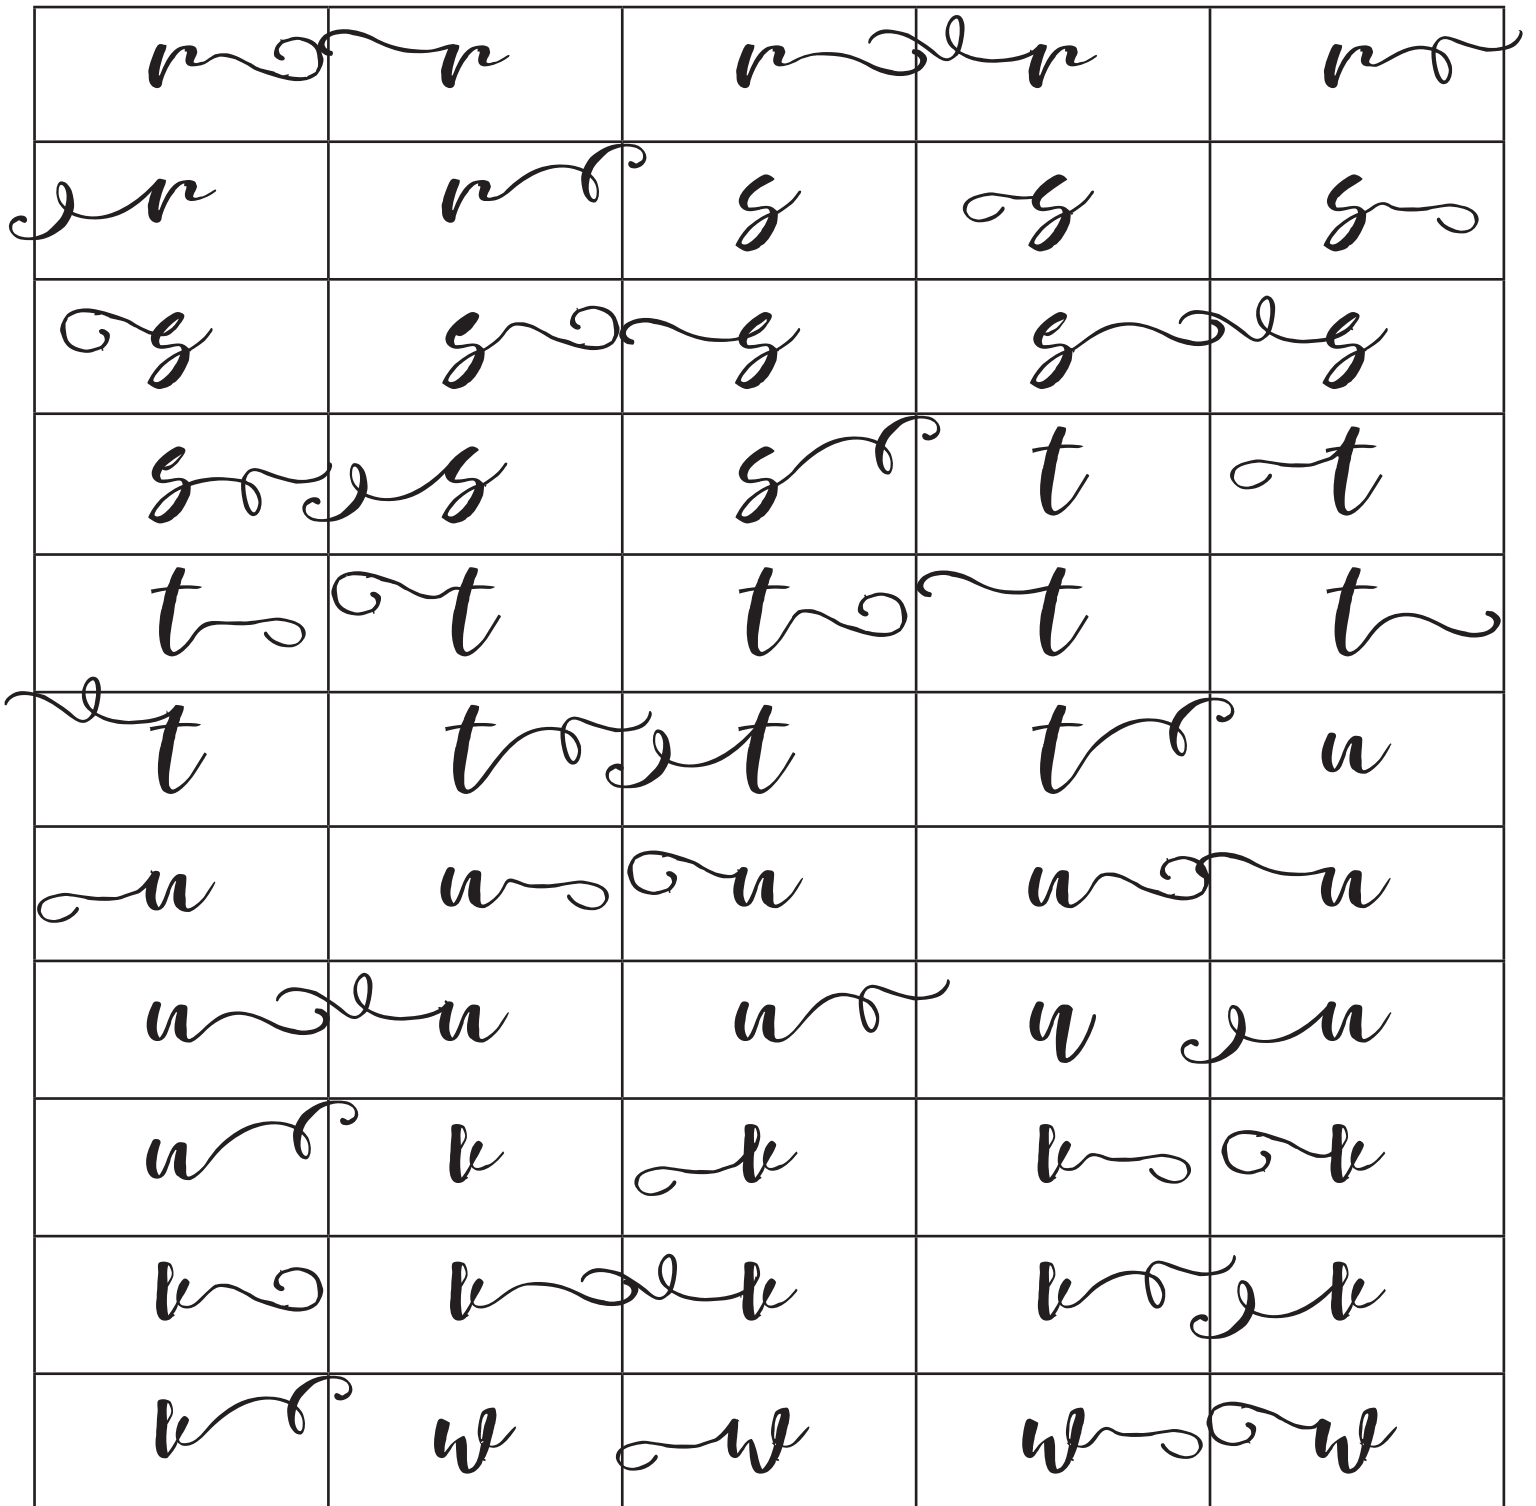 r r r r r
r r s s s
s s s s s
s s s t t
t t t t t
t t t t u
u u u u u
u u u u u
u v v v v
v v v v v
v w w w w